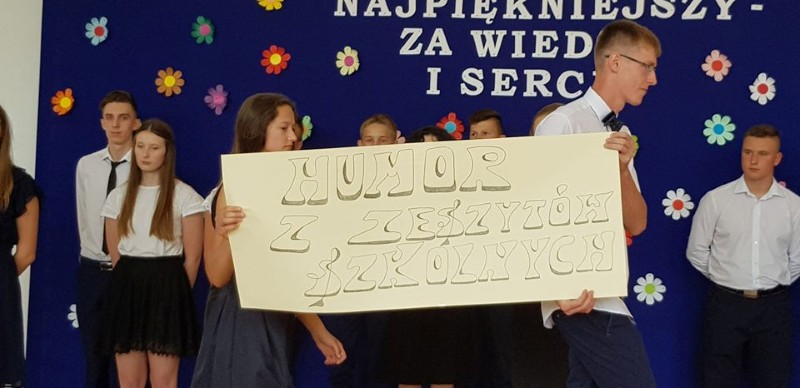 NAJPIĘKNIEJSZY -
ZA WIED
I SERC
HUMOR
Z ZESZYTÓW
SZKOLNYCH